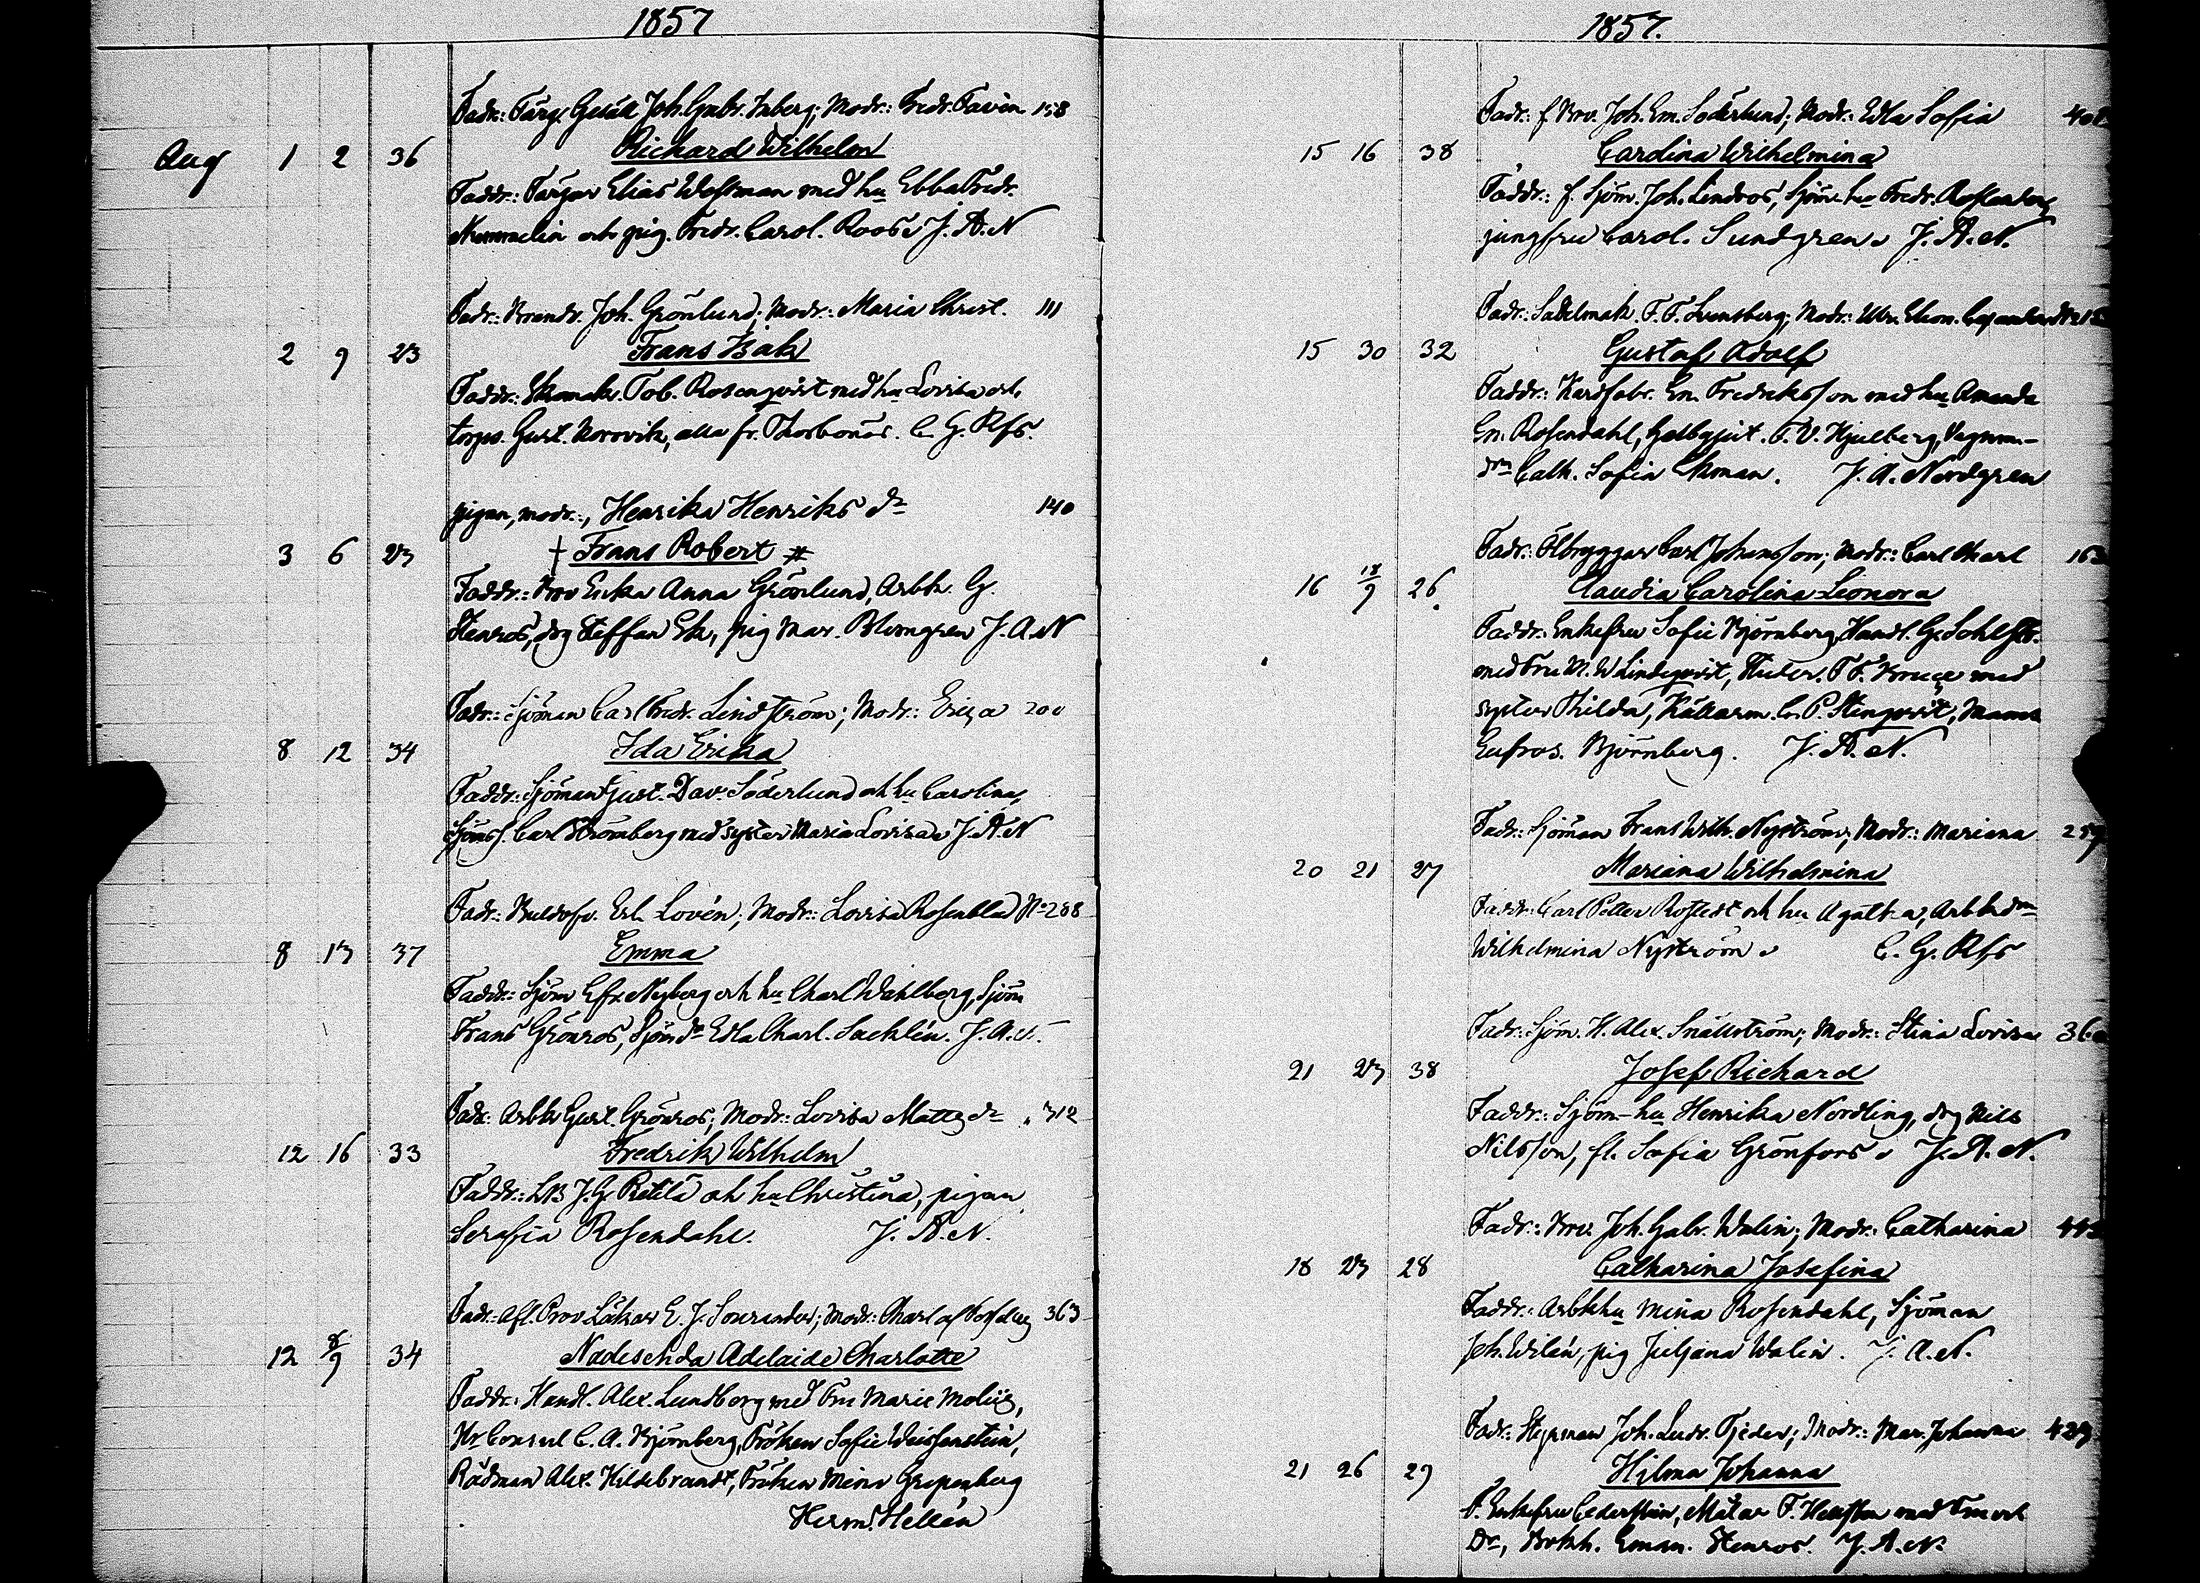 1857
Fadr: Färg. Gesäll Joh. Gabr. Inberg; Modr: Fredr. Favén 158
Aug 1 2 36 Richard Wilhelm
Faddr: Färgar Elias Westman med hu Ebba Fredr.
Nummelin och pig. Fredr. Carol. Roos. J. A. N
Fadr: Joh. Grönlund; Modr: Maria Christ. 111
2 9 23 Frans Isak
Faddr: Tob. Rosenqvist med hu Lovisa och
torps. Gust. Norrvik, alla fr. C. G. Rfs.
pigan, modr., Henrika Henriks dr 140
3 6 23 † Frans Robert #
Faddr: Erika Anna Grönlund, Arbk. G.
Stenros, drg Steffan Ek, pig Mar. Blomgren J. A. N
Fadr: Sjöman Carl Fredr. Lindström; Modr: Eriza 200
8 12 34 Ida Erika
Faddr: Sjöman Gust. Dav. Söderlund och hu Carolina,
Carl Strömberg med syster Maria Lovisa. J. A. N
Fadr: Erl. Lovén; Modr: Lovisa Rosenblad No 288
8 13 37 Emma
Faddr: Sjöm Efr. Nyberg och hu Charl Wahlberg, Sjöm
Frans Grönros, Sjöm dr Edla Charl. Sachlén. J. A. N.
Fadr: Arbk Gust. Grönros; Modr: Lovisa Matts dr 312
12 16 33 Fredrik Wilhelm
Faddr: J. G. Retilä och hu Christina, pigan
Serafia Rosendahl. J. A. N.
Fadr: Afl. Prov Läkar E. J. Modr: Charl af 363
12 8/9 34 Nadeschda Adelaide Charlotte
Faddr: Handl. Alex. Lundborg med Fru Marie Moliis,
Hr Consul C. A. Björnberg, Fröken Sofie Weissenstein,
Rådman Alex. Hildebrandt, Fröken Mina Gripenberg
Herm. Hellén
1857.
Fadr: f. Joh. Em. Söderlund; Modr: Edla Sofia
15 16 38 Carolina Wilhelmina
Faddr: f. Sjöm. Joh. Lindros, Sjöm. hu Fredr.
jungfru Carol. Sundgren. J. A. N.
Fadr: Sadelmak. F. F. Modr:
15 30 32 Gustaf Adolf
Faddr: Kardfabr. En. Fredriksson med hu Amanda
En. Rosendahl, Gelbgjut. Hjulberg, Vagnm-
dr Cath. Sofia Ekman. J. A. Nordgren
Fadr: Ölbryggar Carl Johansson; Modr: Carl Charl 163
16 18/9 26 Claudia Carolina Leonora
Faddr: Enkefru Sofie Björnberg, Handl. G.
med Fru M. W Lindeqvist, med
syster Thilda, Källarm. C. P. Stenqvist,
Eufros. Björnberg. J. A. N.
Fadr: Sjöman Frans Wilh. Nyström; Modr: Mariana 259
20 21 27 Mariana Wilhelmina
Faddr: Carl Petter Rostedt och hu Agatha, Arbk dr
Wilhelmina Nyström. C. G. Rfs
Fadr: Sjöm. K. Alex. Snällström; Modr: Stina Lovisa
21 23 38 Josef Richard
Faddr: Sjöm- hu Henrika Nordling, drg Nils
Nilsson, fl. Sofia Grönfors. J. A. N.
Fadr: Joh. Gabr. Walin; Modr: Catharina
18 23 28 Catharina Josefina
Faddr: Arbk hu Mina Rosendahl, Sjöman
Joh. Wilén, pig Juljana Walin. J. A. N.
Fadr: Styrman Joh. Ludv. Tjeder; Modr: Mar. Johanna 423
21 26 29 Hilma Johanna
F. Enkefru Cederstein, Målar F. med
Eman. Stenros. J. A. N.